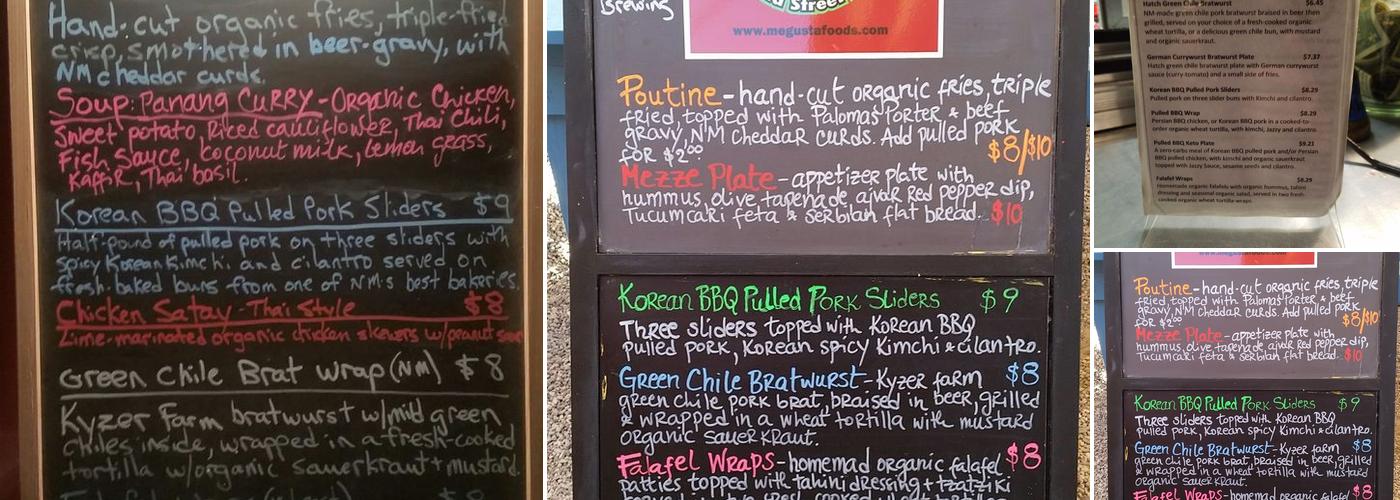 Hand-cut organic fries, triple-fried
crisp, smothered in beer-gravy, with
NM cheddar curds.
Soup: Panang Curry-Organic Chicken,
Sweet potato, Riced cauliflower, Thai Chili,
Fish Sauce, Coconut milk, Lemon grass,
Kaffir, Thai basil.
Korean BBQ Pulled Pork Sliders $9
Half-pound of pulled pork on three sliders with
spicy Korean Kimchi and cilantro served on
fresh-baked buns from one of NM's best bakeries.
Chicken Satay-Thai Style $8
Lime-marinated organic chicken skewers w/peanut
Green Chile Brat Wrap (NM) $8
Kyzer Farm bratwurst w/mild green
chiles inside, wrapped in a fresh-cooked
tortilla w/organic sauerkraut + mustard.
Brewing
Street
www.megustafoods.com
Poutine-hand-cut organic fries, triple
fried, topped with Palomas Porter & beef
gravy, NM Cheddar Curds. Add pulled pork
for $2.00 $8/$10
Mezze Plate-appetizer plate with
hummus, olive tapenade, ajvar red pepper dip,
Tucumcari feta & Serbian flat bread. $10
Korean BBQ Pulled Pork Sliders $9
Three sliders topped with Korean BBQ
pulled pork, Korean spicy Kimchi & cilantro.
Green Chile Bratwurst-Kyzer farm $8
green chile pork brat, braised in beer, grilled
& wrapped in a wheat tortilla with mustard
organic sauerkraut.
Falafel Wraps-homemad organic falafel $8
patties topped with tahini dressing + tzatziki
Hatch Green Chile Bratwurst $6.45
NM-made green chile pork bratwurst braised in beer then
grilled, served on your choice of a fresh-cooked organic
wheat tortilla, or a delicious green chile bun, with mustard
and organic sauerkraut.
German Currywurst Bratwurst Plate $7.37
Hatch green chile bratwurst plate with German currywurst
sauce (curry-tomato) and a small side of fries.
Korean BBQ Pulled Pork Sliders $8.29
Pulled pork on three slider buns with Kimchi and cilantro.
Pulled BBQ Wrap $8.29
Persian BBQ chicken, or Korean BBQ pork in a cooked-to-
order organic wheat tortilla, with kimchi, Jazzy and cilantro.
Pulled BBQ Keto Plate $9.21
A zero-carbs meal of Korean BBQ pulled pork and/or Persian
BBQ pulled chicken, with kimchi and organic sauerkraut
topped with Jazzy Sauce, sesame seeds and cilantro.
Falafel Wraps $8.29
Homemade organic falafels with organic hummus, tahini
dressing and seasonal organic salad, served in two fresh-
cooked organic wheat tortilla-wraps.
Poutine-hand-cut organic fries, triple
fried, topped with Palomas Porter & beef
gravy, NM Cheddar Curds. Add pulled pork
for $2.00 $8/$10
Mezze Plate-appetizer plate with
hummus, olive tapenade, ajvar red pepper dip,
Tucumcari feta & Serbian flat bread. $10
Korean BBQ Pulled Pork Sliders $9
Three sliders topped with Korean BBQ
pulled pork, Korean spicy Kimchi & cilantro.
Green Chile Bratwurst-Kyzer farm $8
green chile pork brat, braised in beer, grilled
& wrapped in a wheat tortilla with mustard
organic sauerkraut.
Falafel Wraps-homemad organic falafel $8